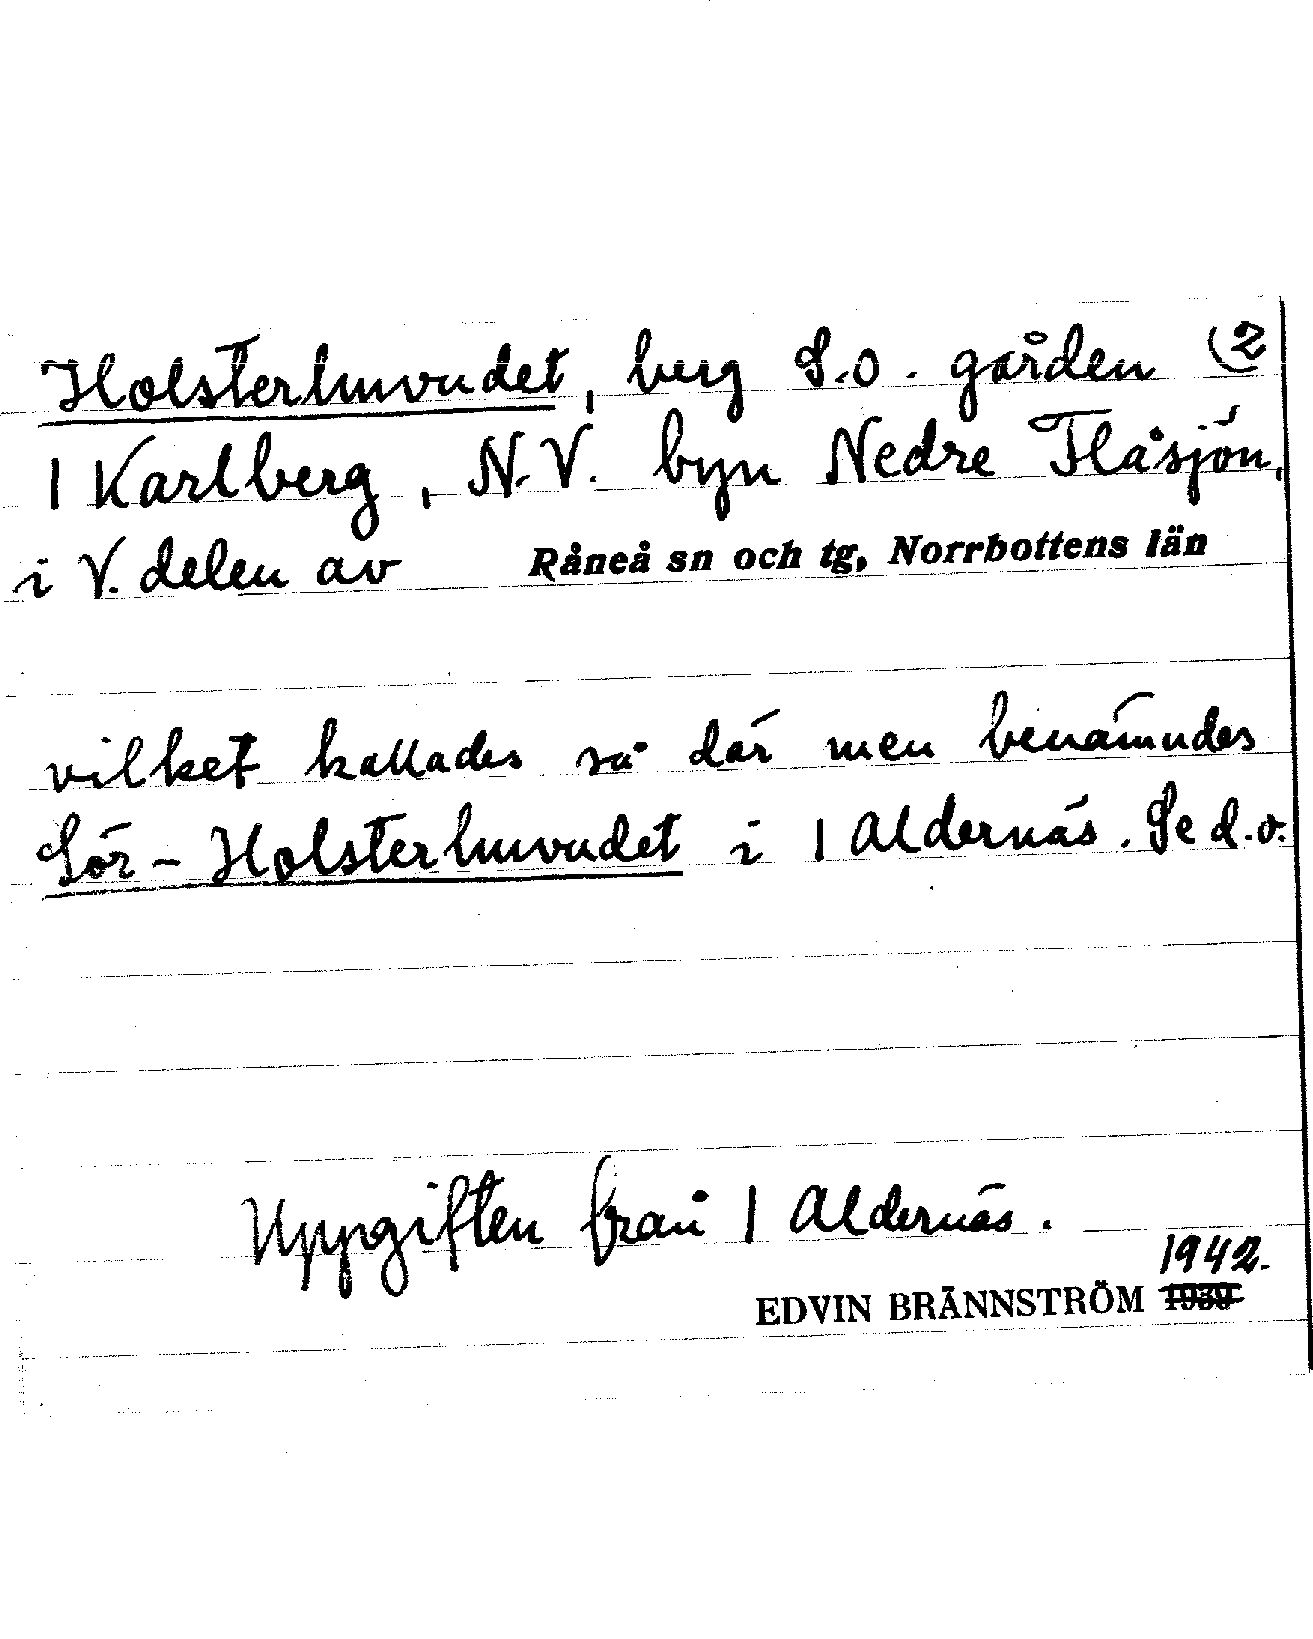 Holsterhuvudet, berg S.O. gården (2
1 Karlberg, N.V. byn Nedre Flåsjön,
i V. delen av Råneå sn och tg, Norrbottens län
vilket kallades så där men benämndes
Sör-Holsterhuvudet i 1 Aldernäs. Se d.o.
Uppgiften från 1 Aldernäs.
1942.
EDVIN BRÄNNSTRÖM 1939